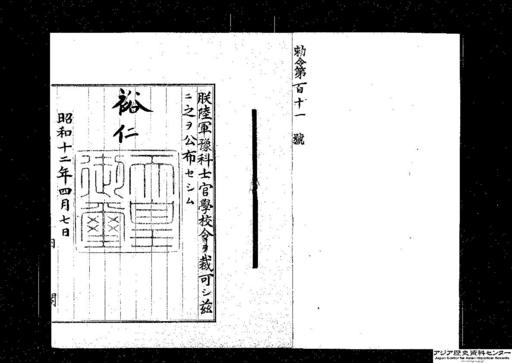 勅令第百十一號
朕陸軍豫科士官學校令ヲ裁可シ茲
ニ之ヲ公布セシム
裕仁
天皇御璽
昭和十二年四月七日
アジア歴史資料センター
Japan Center for Asian Historical Records